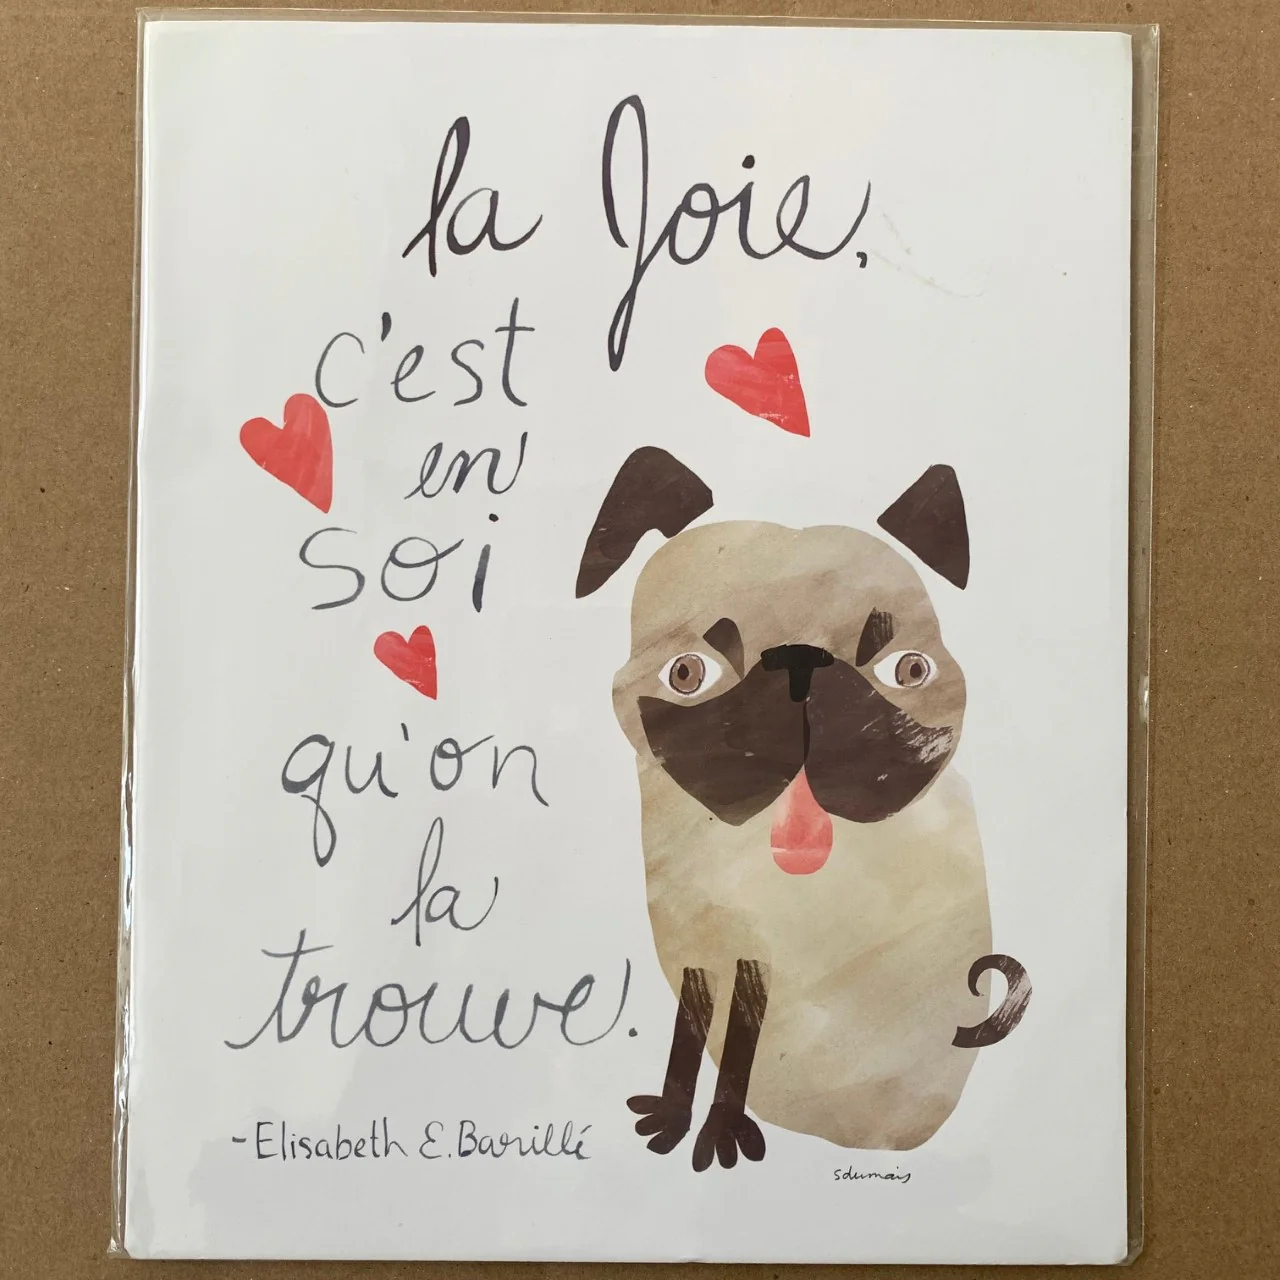 la Joie,
c'est
en
soi
qu'on
la
trouve.
-Elisabeth E. Barillé
sdumais